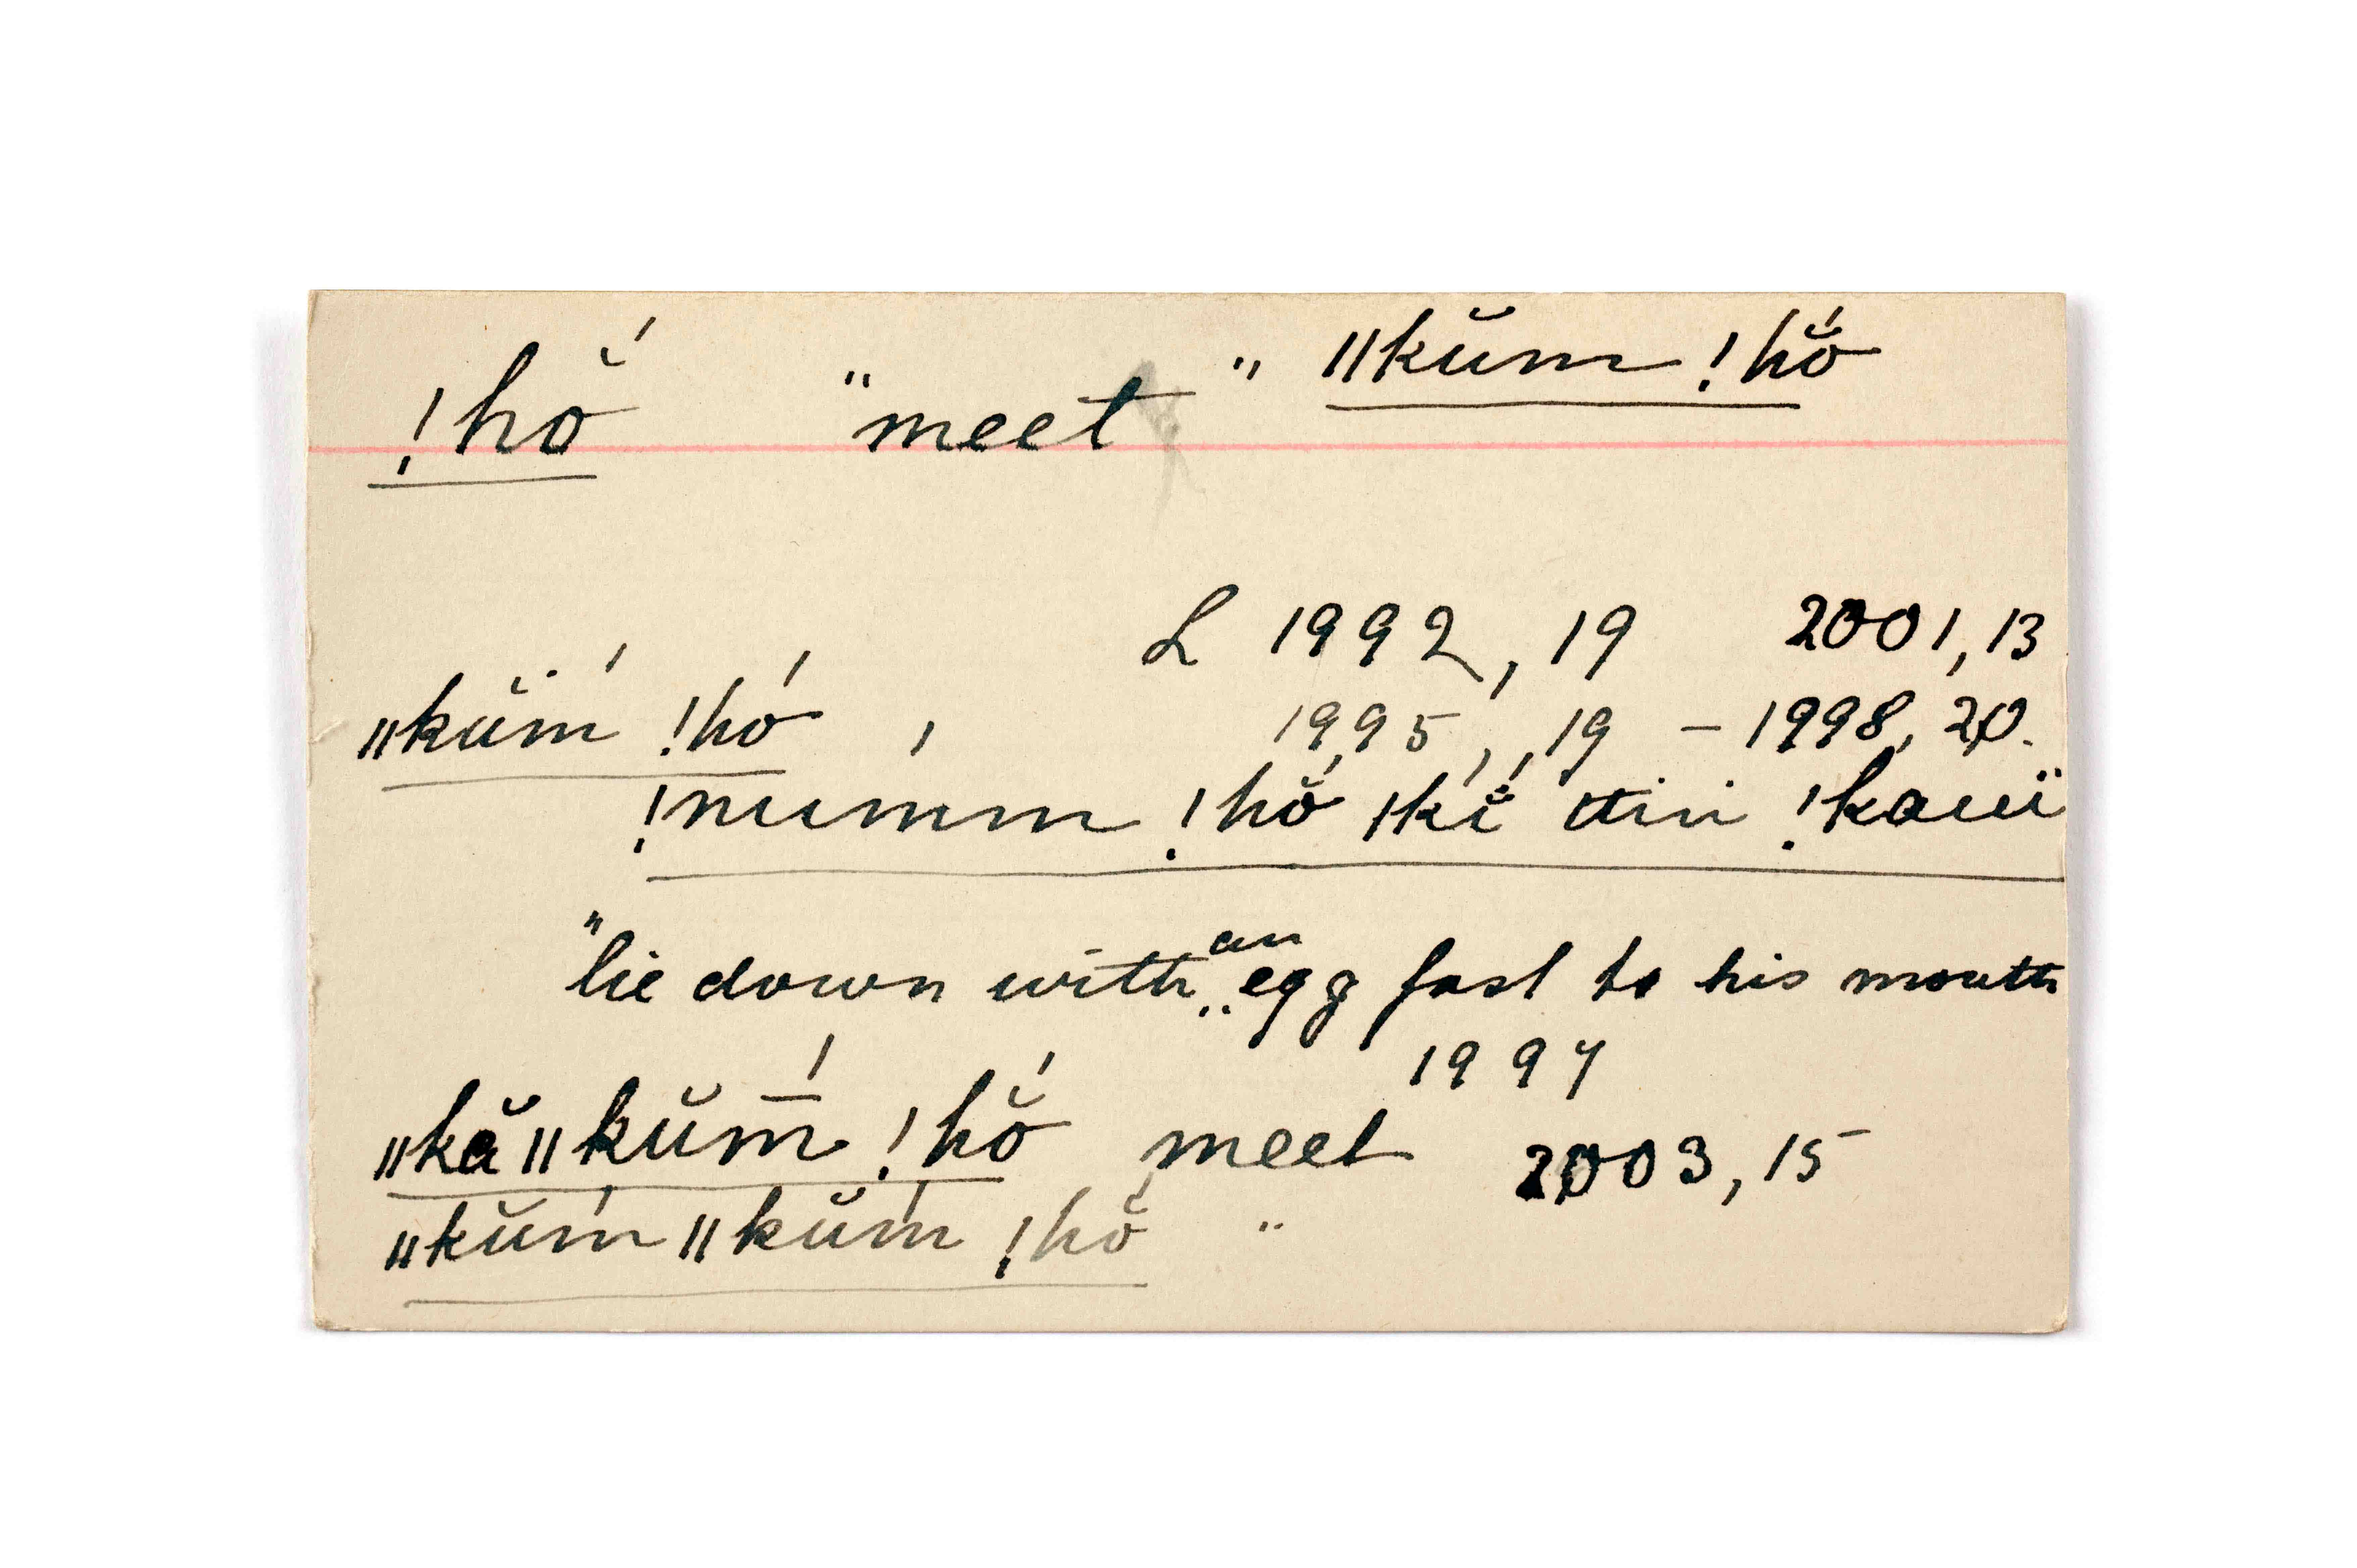 !hŏ́ "meet" ǁkŭm !hŏ́
L 1992, 19 2001, 13
ǁkŭ̈ḿ !hó , 1995, 19 – 1998, 20.
!numm !hŏ́ !kĭ́ ttiń !kauï
"lie down with an egg fast to his mouth
1997
ǁkăǁkŭm̄́ !hŏ́ meet 2003, 15
ǁkŭḿǁkŭḿ !hŏ "